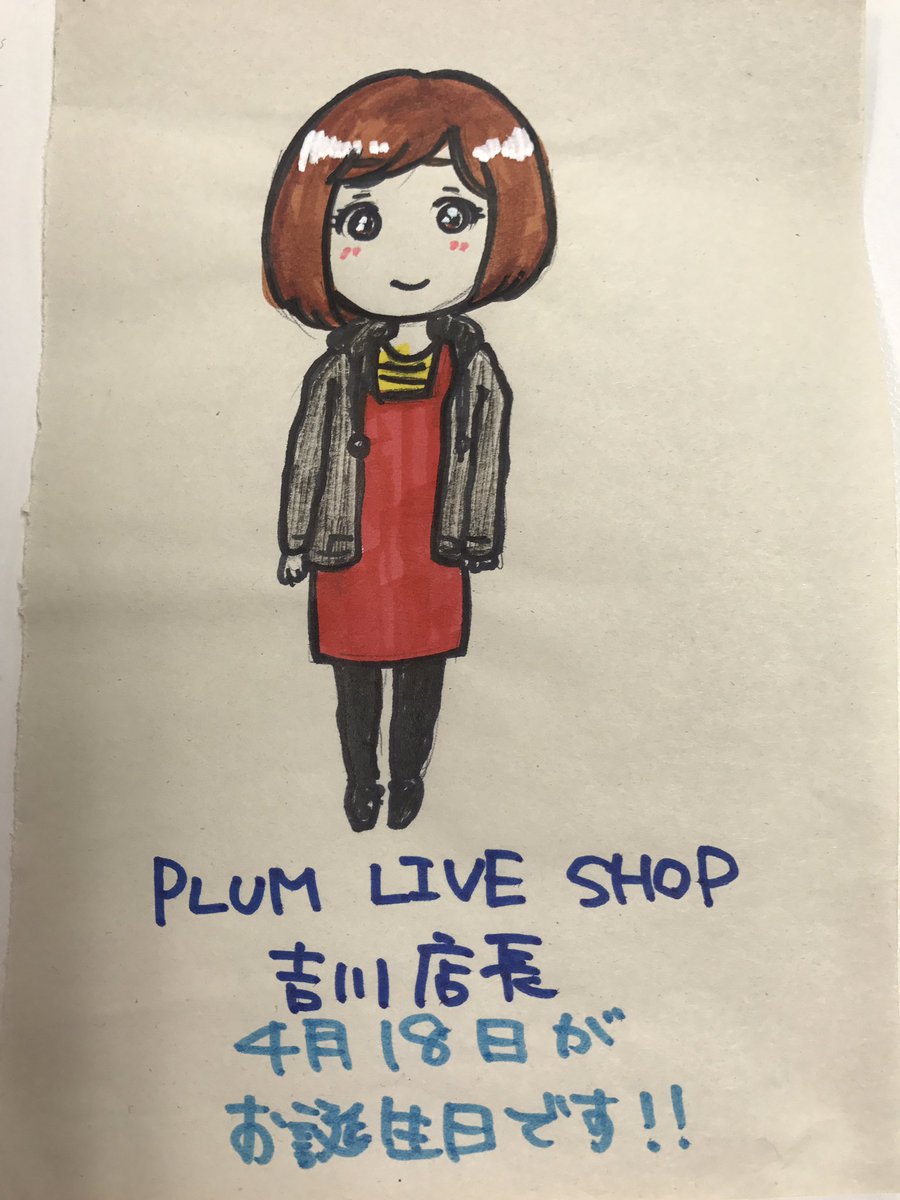 PLUM LIVE SHOP
吉川店長
4月18日が
お誕生日です!!